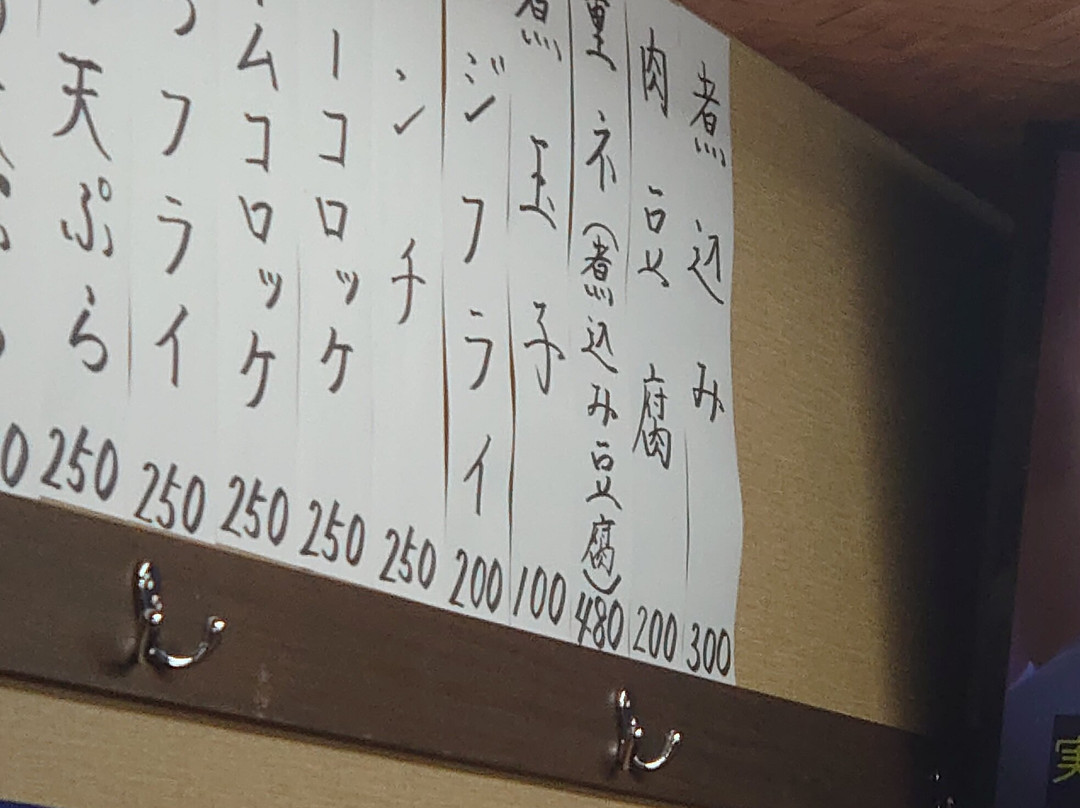 煮込み 300
肉豆腐 200
重ネ(煮込み豆腐) 480
煮玉子 100
ジフライ 200
ンチ 250
ーコロッケ 250
ムコロッケ 250
フライ 250
天ぷら 250
0
実